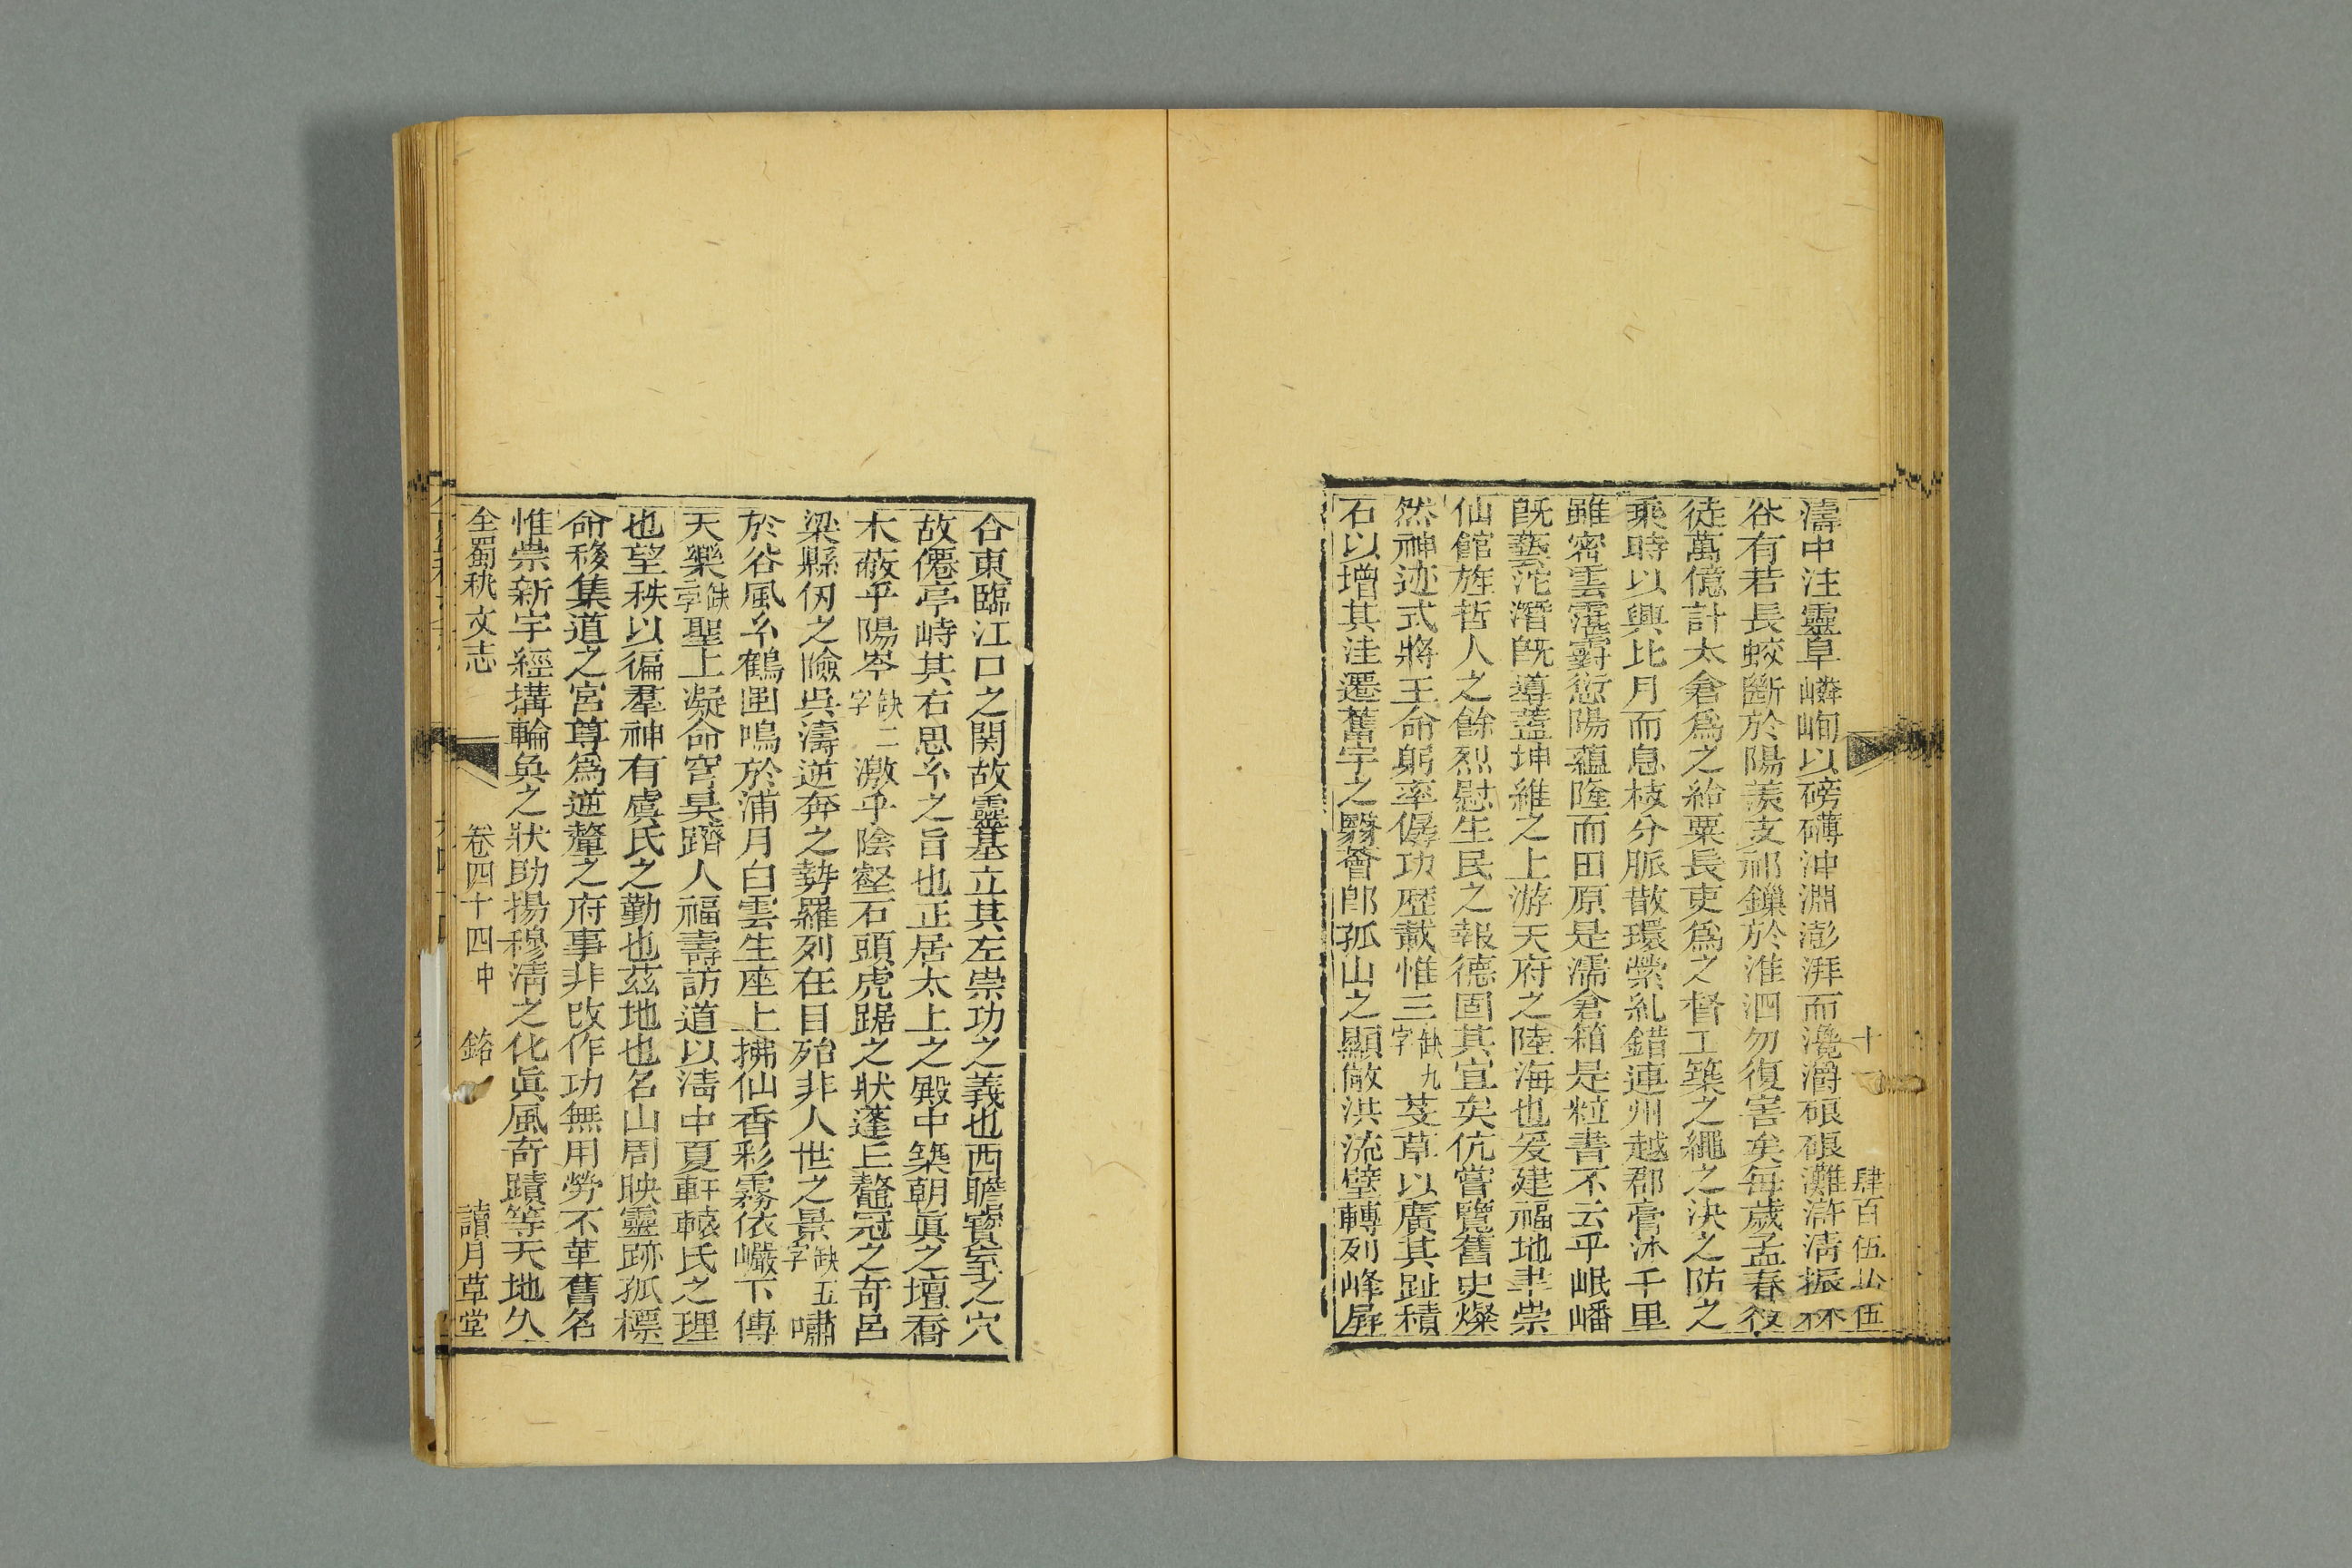 十一 肆百伍拾伍
濤中注靈阜嶙峋以磅礴沖淵澎湃而灔灂硠硠灘滸淸振林
谷有若長蛟斷於陽羨支祁鏁於淮泗勿復害矣每歲孟春役
徒萬億計太倉爲之給粟長吏爲之督工築之繩之決之防之
乘時以興比月而息枝分脈散環縈糺錯連州越郡膏沐千里
雖密雲霮䨴愆陽蘊隆而田原是濡倉箱是粒書不云乎岷嶓
旣藝沱潛旣導葢坤維之上游天府之陸海也爰建福地聿崇
仙館旌哲人之餘烈慰生民之報德固其宜矣伉嘗覽舊史燦
然神迹式將王命躬率僝功歷載惟三缺九字茇草以廣其趾積
石以增其洼遷舊宇之翳薈郎孤山之顯敞洪流璧轉列峰屏
合東臨江口之関故靈基立其左崇功之義也西瞻寶室之穴
故僊亭峙其右思糸之旨也正居太上之殿中築朝眞之壇喬
木蔽乎陽岑缺二字激乎陰壑石頭虎踞之狀蓬丘鼇冠之奇呂
梁縣仞之險呉濤逆奔之勢羅列在目殆非人世之景缺五字嘯
於谷風糸鶴圉鳴於浦月白雲生座上拂仙香彩霧依巖下傳
天樂缺字聖上凝命穹昊躋人福壽訪道以淸中夏軒轅氏之理
也望秩以徧羣神有虞氏之勤也茲地也名山周映靈跡孤標
命移集道之宮尊爲逆釐之府事非改作功無用勞不革舊名
惟崇新宇經搆輪奐之狀助揚穆淸之化眞風奇蹟等天地久
全蜀秇文志 卷四十四中 銘 讀月草堂